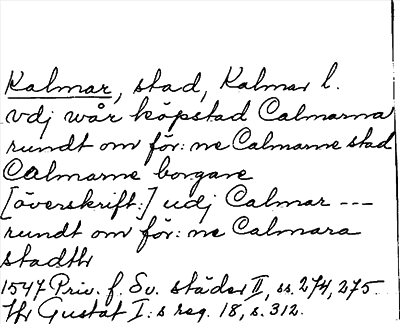 Kalmar, stad, Kalmar l.
vdj wår köpstad Calmarna
rundt om för:ne Calmarne stad
Calmarne borgare
[överskrift:] udj Calmar ---
rundt om för:ne Calmara
stadth
1547 Priv. f. Sv. städer II, ss. 274, 275.
Gustaf I:s reg. 18, s. 312.